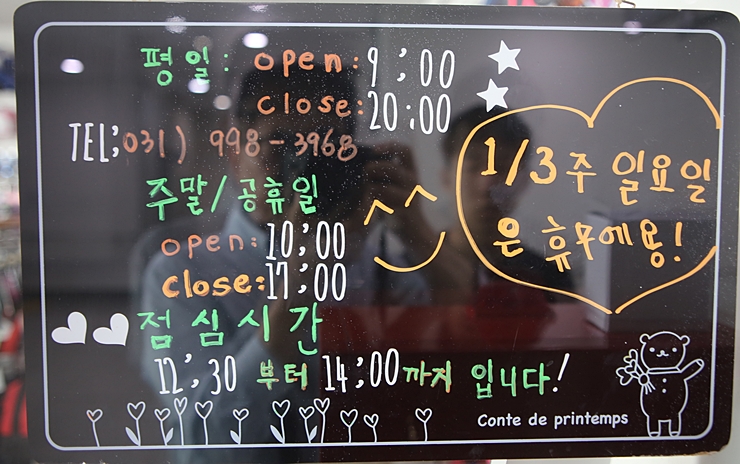 평일: open: 9:00
close: 20:00
TEL: 031) 998-3968
주말/공휴일
open: 10:00
close: 17:00
점심시간
12:30 부터 14:00 까지 입니다!
1/3주 일요일
은 휴무에용!
^^
Conte de printemps